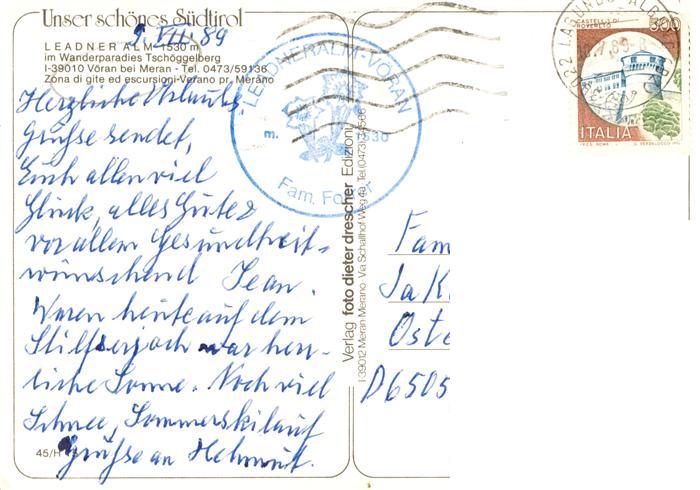 Unser schönes Südtirol
9. VII. 89
LEADNER ALM 1530 m
im Wanderparadies Tschögglberg
I-39010 Vöran bei Meran - Tel. 0473/59136
Zona di gite ed escursioni-Verano pr. Merano
Herzliche Urlaubs-
grüsse sendet,
Euch allen viel
Glück, alles Gute &
vor allem Gesundheit-
wünschend Jean.
Waren heute auf dem
Stilfserjoch war herr-
liche Sonne. Noch viel
Schnee, Sommerskilauf
Grüsse an Helmut.
45/H
LEADNERALM-VÖRAN
m. 1530
Fam.
Verlag foto dieter drescher Edizioni
I-39012 Meran Merano - Via Schaffhof Weg 4a, Tel. (0473)
500
CASTELLO DI
ROVERETO
ITALIA
I.P.Z.S. ROMA
Fam
Oste
D6505